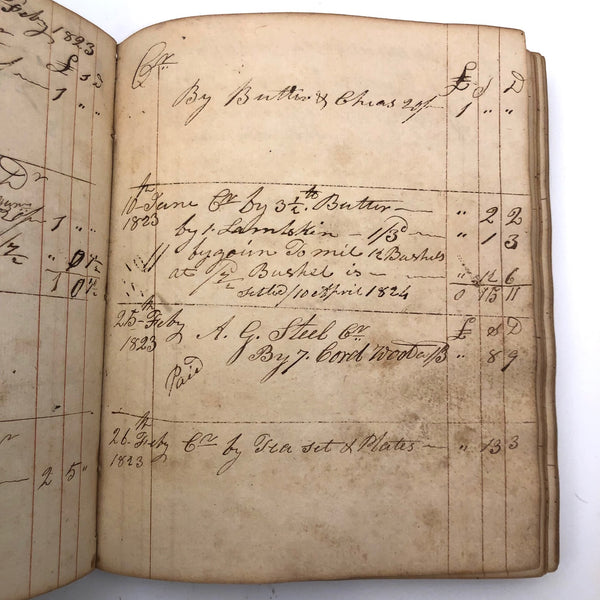 Feby 1823
£ s D
1 " "
Dr
1 " "
" 0 7½
1 0 7½
2 5 "
Cr £ s D
By Butter & Cheas 20/- 1 " "
10th June Cr by 3½ lb Butter — " 2 2
1823 by 1. Lambskin — 1/3d — " 1 3
by goin To mil 12 Bushels
at 1/½ Bushel is — — " 12 6
Settled 10 April 1824 0 15 11
25th Feby A. G. Steel Cr £ s D
1823 By 7. Cord Wood a 1/3 " 8 9
Paid
26th Feby Cr by Tea set & Plates — " 13 3
1823